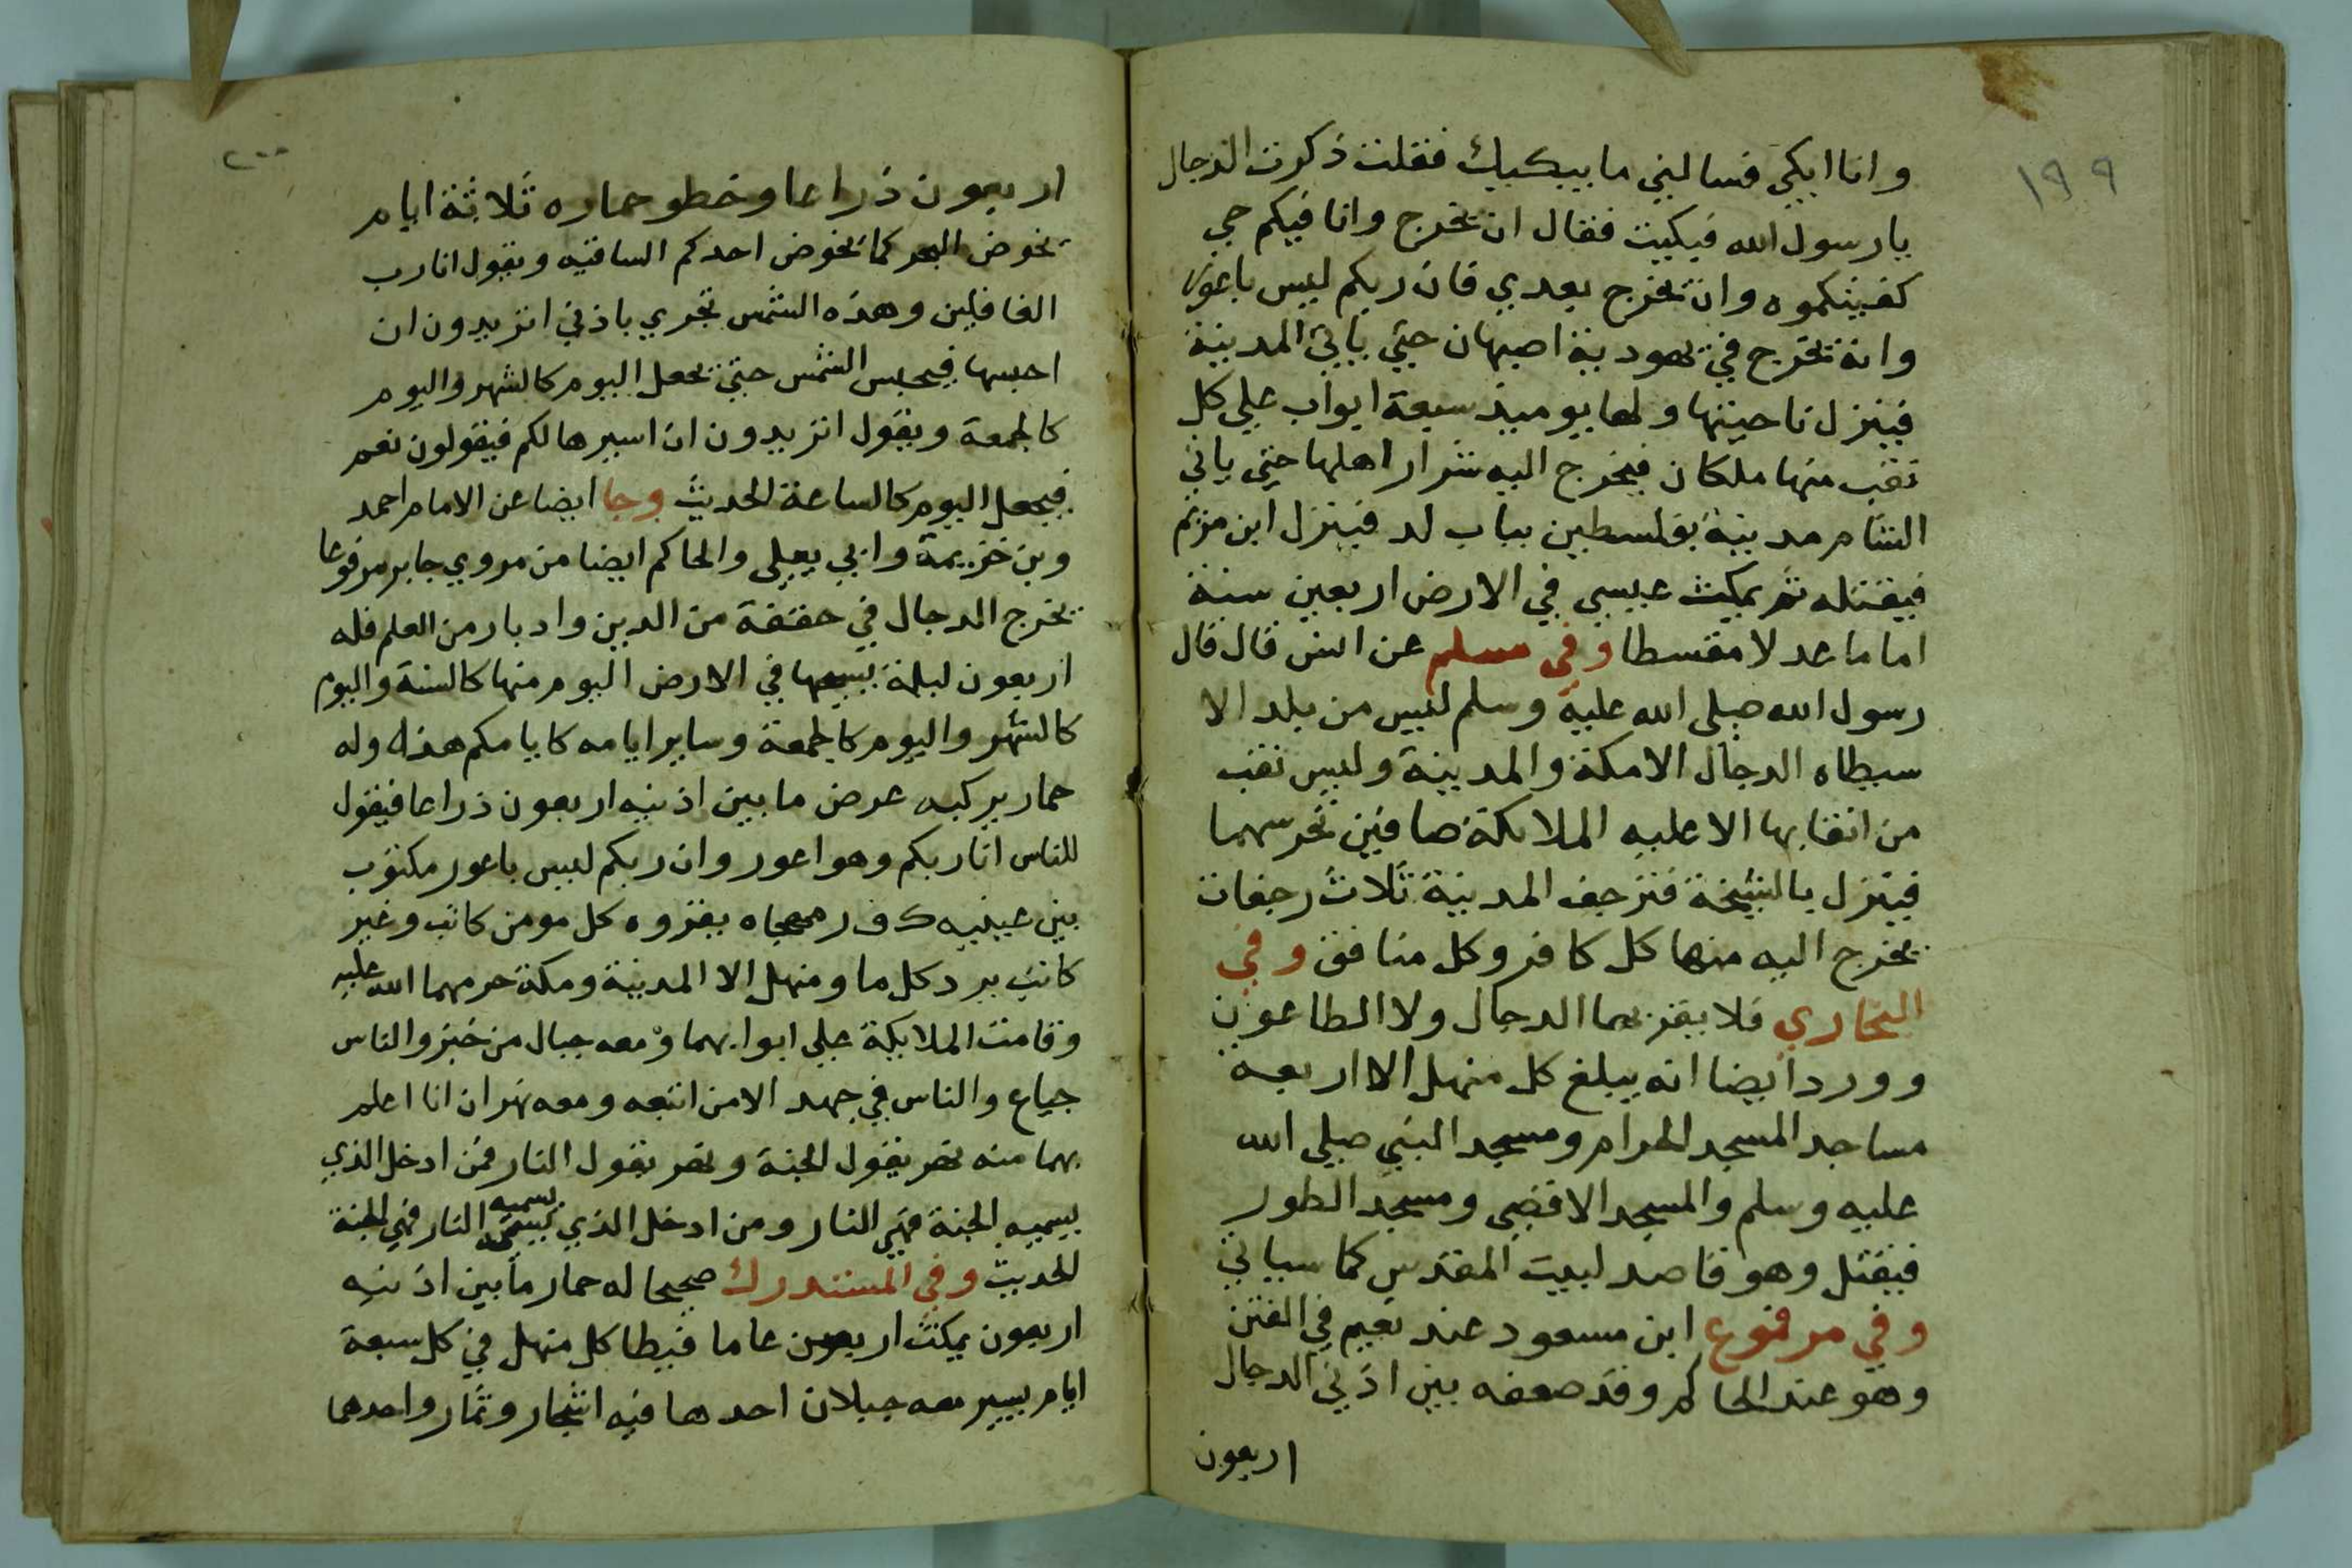 ١٩٩
وانا ابكي فسالني ما يبكيك فقلت ذكرت الدجال
يارسول الله فبكيت فقال ان يخرج وانا فيكم حي
كفيتكموه وان يخرج بعدي فان ربكم ليس باعور
وانه يخرج في يهودية اصبهان حتي ياتي المدينة
فينزل ناحيتها ولها يوميذ سبعة ابواب علي كل
نقب منها ملكان فيخرج اليه شرار اهلها حتي ياتي
الشام مدينة بفلسطين بباب لد فينزل ابن مريم
فيقتله ثم يمكث عيسي في الارض اربعين سنة
اماما عدلا مقسطا وفي مسلم عن انس قال قال
رسول الله صلى الله عليه وسلم ليس من بلد الا
سيطاه الدجال الا مكة والمدينة وليس نقب
من انقابها الا عليه الملائكة صافين تحرسهما
فينزل بالسبخة فترجف المدينة ثلاث رجفات
يخرج اليه منها كل كافر وكل منافق وفي
البخاري فلا يقربهما الدجال ولا الطاعون
وورد ايضا انه يبلغ كل منهل الا اربعة
مساجد المسجد الحرام ومسجد النبي صلي الله
عليه وسلم والمسجد الاقصي ومسجد الطور
فيقتل وهو قاصد لبيت المقدس كما سياتي
وفي مرفوع ابن مسعود عند نعيم في الفتن
وهو عند الحاكم وقد ضعفه بين اذني الدجال
اربعون
٢٠٠
اربعون ذراعا وخطو حماره ثلاثة ايام
يخوض البحر كما يخوض احدكم الساقيه ويقول انا رب
العالمين وهذه الشمس تجري باذني اتريدون ان
احبسها فيحبس الشمس حتي يجعل اليوم كالشهر واليوم
كالجمعة ويقول اتريدون ان اسيرها لكم فيقولون نعم
فيجعل اليوم كالساعة الحديث وجا ايضا عن الامام احمد
وبن خزيمة وابي يعلى والحاكم ايضا من مروي جابر مرفوعا
يخرج الدجال في خفقة من الدين وادبار من العلم فله
اربعون ليلة يسيحها في الارض اليوم منها كالسنة واليوم
كالشهر واليوم كالجمعة وساير ايامه كايامكم هذه وله
حمار يركبه عرض ما بين اذنيه اربعون ذراعا فيقول
للناس انا ربكم وهو اعور وان ربكم ليس باعور مكتوب
بين عينيه ك ف ر مهجاه يقروه كل مومن كاتب وغير
كاتب يرد كل ما ومنهل الا المدينة ومكة حرمهما الله عليه
وقامت الملايكة علي ابوابهما ومعه جبال من خبز والناس
جياع والناس في جهد الا من اتبعه ومعه نهران انا اعلم
بهما منه نهر يقول الجنة ونهر يقول النار فمن ادخل الذي
يسميه الجنة فهي النار ومن ادخل الذي يسميه النار فهي الجنة
الحديث وفي المستدرك صحيحا له حمار ما بين اذنيه
اربعون يمكث اربعين عاما فيطا كل منهل في كل سبعة
ايام يسير معه جبلان احدها فيه اشجار وثمار واحدهما